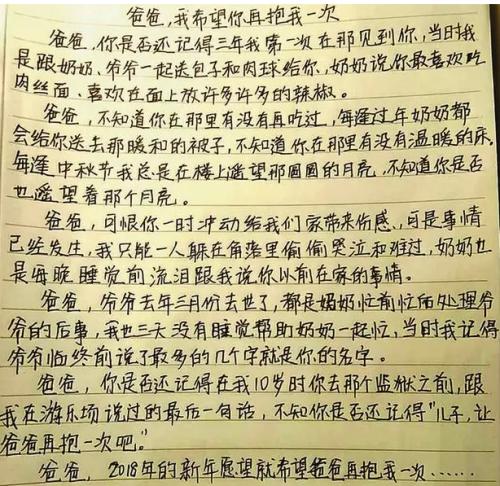 爸爸,我希望你再抱我一次
爸爸,你是否还记得三年我第一次在那见到你,当时我
是跟奶奶、爷爷一起送包子和肉球给你,奶奶说你最喜欢吃
肉丝面、喜欢在面上放许多许多的辣椒。
爸爸,不知道你在那里有没有再吃过,每逢过年奶奶都
会给你送去那暖和的被子,不知道你在那里有没有温暖的床。
每逢中秋节我总是在楼上遥望那圆圆的月亮,不知道你是否
也遥望着那个月亮。
爸爸,可恨你一时冲动给我们家带来伤感、可是事情
已经发生,我只能一人躲在角落里偷偷哭泣和难过,奶奶也
是每晚睡觉前流泪跟我说你以前在家的事情。
爸爸,爷爷去年三月份去世了,都是奶奶忙前忙后处理爷
爷的后事,我也三天没有睡觉帮助奶奶一起忙,当时我记得
爷爷临终前说了最多的几个字就是你的名字。
爸爸,你是否还记得在我10岁时你去那个监狱之前,跟
我在游乐场说过的最后一句话,不知你是否还记得"儿子,让
爸爸再抱一次吧。"
爸爸,2018年的新年愿望就希望爸爸再抱我一次……